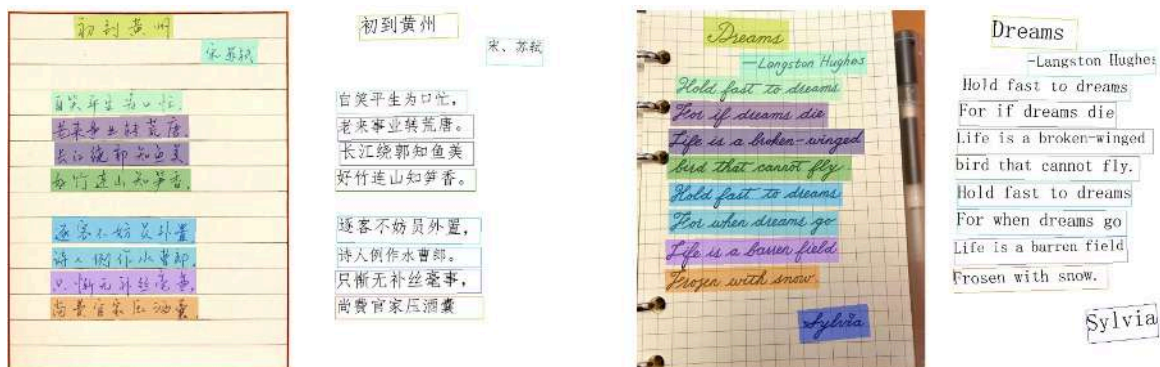 初到黄州
宋 苏轼
自笑平生为口忙.
老来事业转荒唐.
长江绕郭知鱼美
好竹连山知笋香.
逐客不妨员外置
诗人例作水曹郎
只惭无补丝毫事,
尚费官家压酒囊.
初到黄州
宋、苏轼
自笑平生为口忙，
老来事业转荒唐。
长江绕郭知鱼美
好竹连山知笋香。
逐客不妨员外置，
诗人例作水曹郎。
只惭无补丝毫事，
尚費官家压酒囊
Dreams
—Langston Hughes
Hold fast to dreams
For if dreams die
Life is a broken-winged
bird that cannot fly.
Hold fast to dreams
For when dreams go
Life is a barren field
Frozen with snow.
Sylvia
Dreams
-Langston Hughes
Hold fast to dreams
For if dreams die
Life is a broken-winged
bird that cannot fly.
Hold fast to dreams
For when dreams go
Life is a barren field
Frosen with snow.
Sylvia